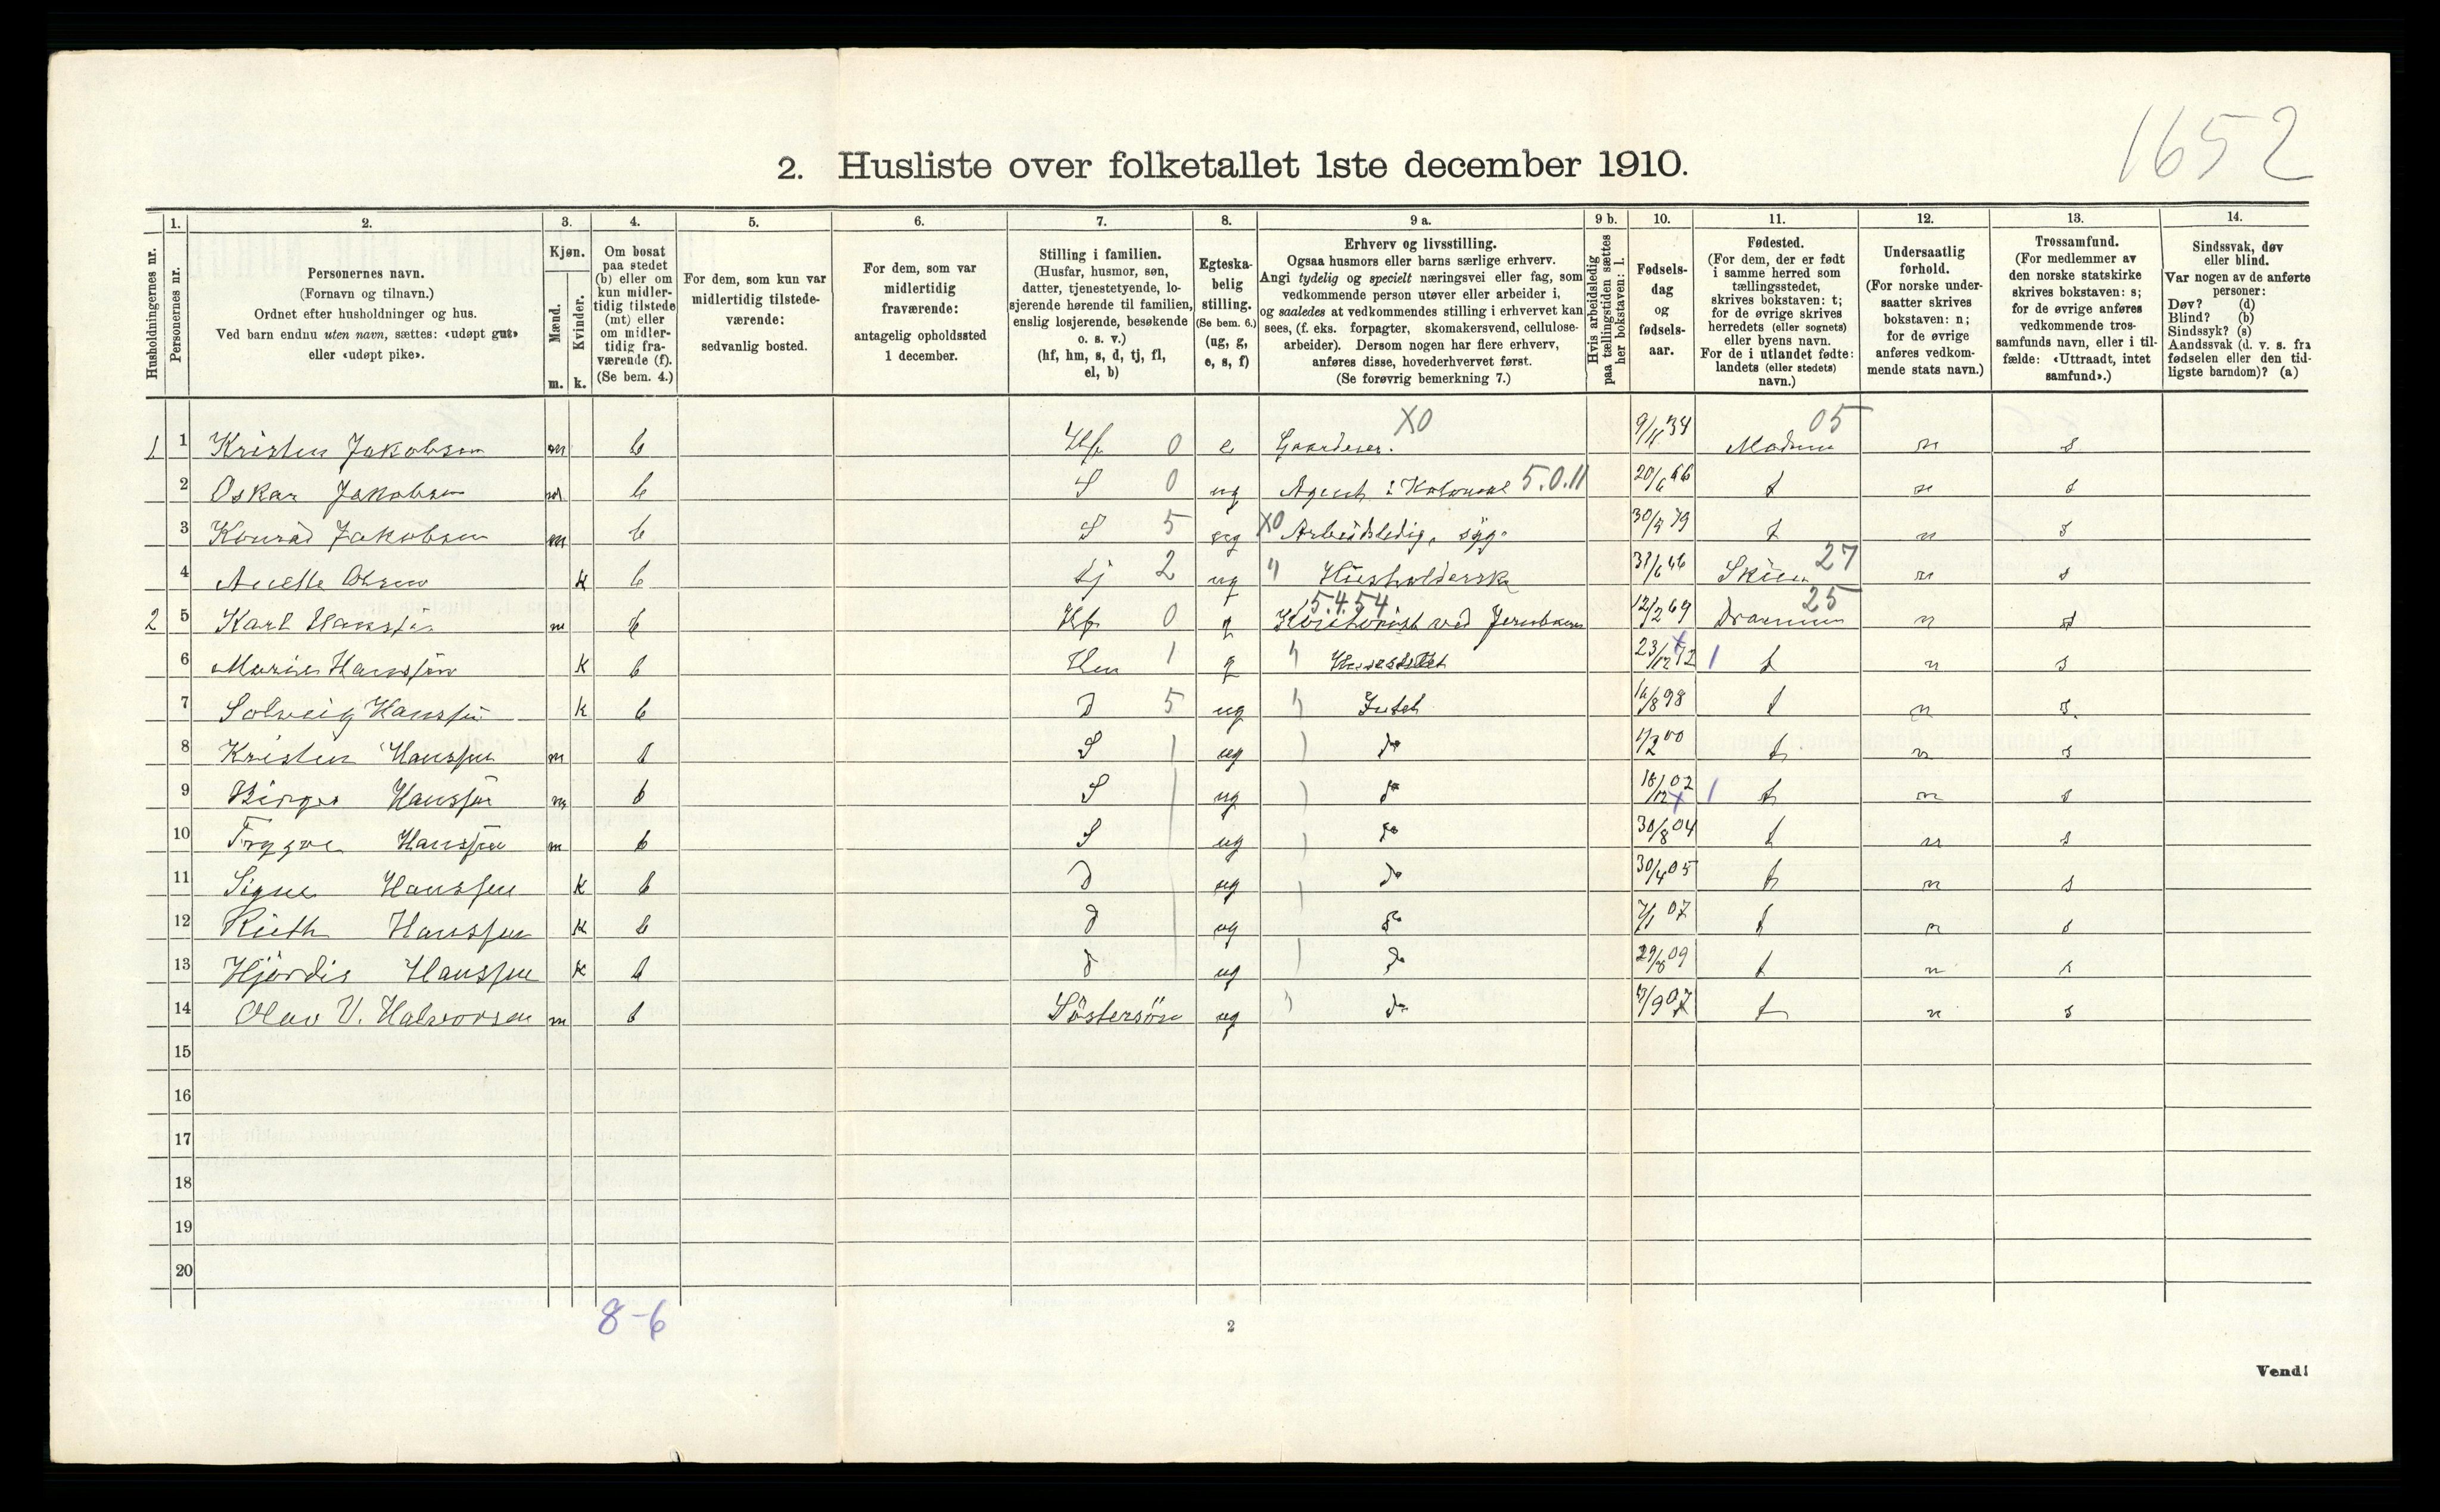 1652
2. Husliste over folketallet 1ste december 1910.
1. 2. 3. 4. 5. 6. 7. 8. 9 a. 9 b. 10. 11. 12. 13. 14.
Husholdningernes nr.
Personernes nr.
Personernes navn.
(Fornavn og tilnavn.)
Ordnet efter husholdninger og hus.
Ved barn endnu uten navn, sættes: «udøpt gut»
eller «udøpt pike».
Kjøn.
Mænd.
Kvinder.
m. k.
Om bosat
paa stedet
(b) eller om
kun midler-
tidig tilstede
(mt) eller
om midler-
tidig fra-
værende (f).
(Se bem. 4.)
For dem, som kun var
midlertidig tilstede-
værende:
sedvanlig bosted.
For dem, som var
midlertidig
fraværende:
antagelig opholdssted
1 december.
Stilling i familien.
(Husfar, husmor, søn,
datter, tjenestetyende, lo-
sjerende hørende til familien,
enslig losjerende, besøkende
o. s. v.)
(hf, hm, s, d, tj, fl,
el, b)
Egteska-
belig
stilling.
(Se bem. 6.)
(ug, g,
e, s, f)
Erhverv og livsstilling.
Ogsaa husmors eller barns særlige erhverv.
Angi tydelig og specielt næringsvei eller fag, som
vedkommende person utøver eller arbeider i,
og saaledes at vedkommendes stilling i erhvervet kan
sees, (f. eks. forpagter, skomakersvend, cellulose-
arbeider). Dersom nogen har flere erhverv,
anføres disse, hovederhvervet først.
(Se forøvrig bemerkning 7.)
Hvis arbeidsledig
paa tællingstiden sættes
her bokstaven: l.
Fødsels-
dag
og
fødsels-
aar.
Fødested.
(For dem, der er født
i samme herred som
tællingsstedet,
skrives bokstaven: t;
for de øvrige skrives
herredets (eller sognets)
eller byens navn.
For de i utlandet fødte:
landets (eller stedets)
navn.)
Undersaatlig
forhold.
(For norske under-
saatter skrives
bokstaven: n;
for de øvrige
anføres vedkom-
mende stats navn.)
Trossamfund.
(For medlemmer av
den norske statskirke
skrives bokstaven: s;
for de øvrige anføres
vedkommende tros-
samfunds navn, eller i til-
fælde: «Uttraadt, intet
samfund».)
Sindssvak, døv
eller blind.
Var nogen av de anførte
personer:
Døv? (d)
Blind? (b)
Sindssyk? (s)
Aandssvak (d. v. s. fra
fødselen eller den tid-
ligste barndom)? (a)
X0 05
1 1 Kristen Jakobsen m b Hf 0 e Gaardeier. Modum n s
2 Oskar Jakobsen m b S 0 ug Agent i Kolonial 5.0.11 20/6 66 t n s
3 Konrad Jakobsen m b S 5 ug X0 Arbeidsledig, syg. t n s
4 Olsen k b tj 2 ug " Husholderske Skien 27 n s
5.4.54 25
2 5 Karl Hanssen m b Hf 0 g Kontorist ved Jernbanen 12/2 69 Drammen n s
6 Marie Hanssen k b Hm 1 g " Husstellet 23/12 72 1 t n s
7 Solveig Hanssen k b D 5 ug " Intet 98 t n s.
8 Kristen Hanssen m b S 1 ug " do 00 t n s
9 Birger Hanssen m b S ug do 18/12 02 1 t n s
10 Trygve Hanssen m b S ug do 30/8 04 t n s
11 Signe Hanssen k b D ug do 30/4 05 t n s
12 Ruth Hanssen k b d ug do 7/1 07 t n s
13 Hjørdis Hanssen k b d ug do 29/8 09 t n s
14 Olav V. Halvorsen m b Søstersøn ug " do t n s
15
16
17
18
19
20
8-6
2
Vend!